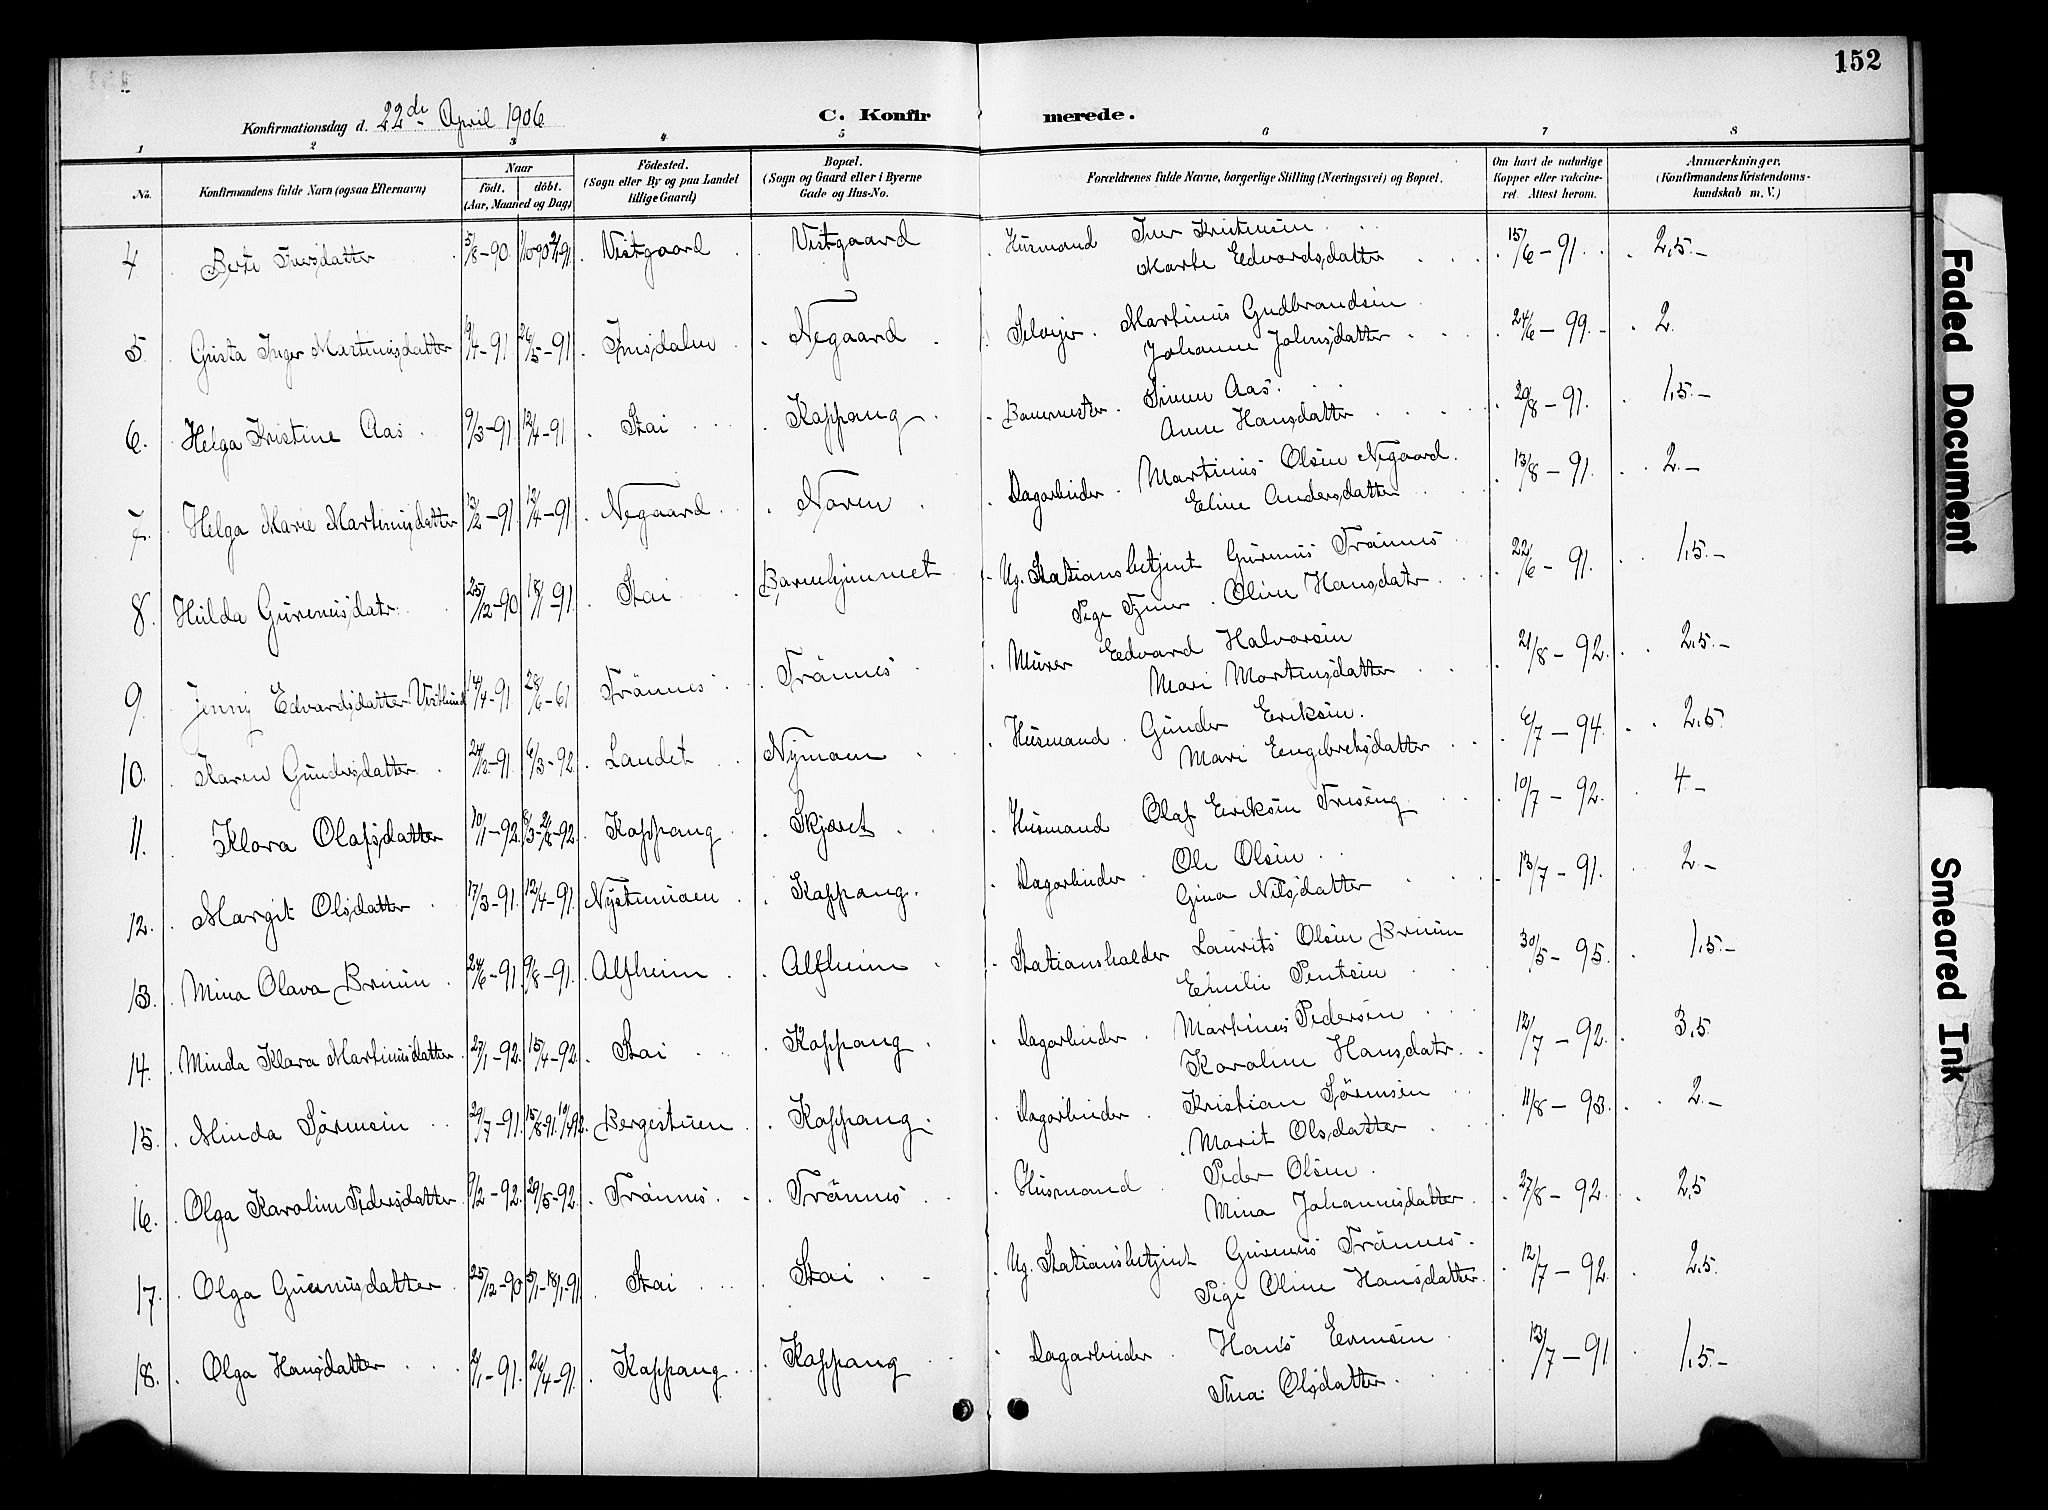 152
Konfirmationsdag d. 22de April 1906
C. Konfirmerede.
1 2 3 4 5 6 7 8
No.
Konfirmandens fulde Navn (ogsaa Efternavn)
Naar
födt. döbt.
(Aar, Maaned og Dag)
Födested.
(Sogn eller By og paa Landet
tillige Gaard)
Bopæl.
(Sogn og Gaard eller i Byerne
Gade og Hus-No.
Forældrenes fulde Navne, borgerlige Stilling (Næringsvei) og Bopæl.
Om havt de naturlige
Kopper eller vakcine-
ret. Attest herom.
Anmærkninger.
(Konfirmandens Kristendoms-
kundskab m. V.)
4 Berte Iversdatter 5/8-90 Vestgaard Vestgaard Husmand Iver Kristensen 15/6-91. 2,5.-
Marte Edvardsdatter
5. Inger Martinusdatter 9/4-91 26/5-91 Negaard Selveier Martinus Gudbrandsen 24/6-99.- 2.
Johanne Johnsdatter
6. Helga Kristine Aas 9/3-91 12/4-91 Stai Koppang Banemester Simen Aas. 29/8-91. 1,5.-
Anne Hansdatter
7. Helga Marie Martinusdatter 13/2-91. 12/4-91 Negaard Noren Dagarbeider Martinus Olsen Negaard. 13/8-91. 2.-
Eline Andersdatter
8. Hulda Gurenusdatr. 25/12-90 18/1-91. Stai Barnehjemmet Ug. Stationsbetjent Gurenus Trönnes 22/6-91. 1,5.-
Pige Oline Hansdatr.
9. Jenny Edvardsdatter Vestlund 14/4-91 28/6-61 Trönnes Trönnes Murer Edvard Halvorsen 21/8-92. 2,5.-
Mari Mortensdatter
10. Karen Gundersdatter 6/3-92 Landet Nymoen Husmand Gunder Eriksen. 6/7-94. 2,5
Mari Engebretsdatter
11. Klara Olafsdatter 10/1-92. Koppang Skjæret Husmand Olaf Eriksen 10/7-92. 4-
12. Margit Olsdatter 17/3-91. 12/4-91. Nystumoen Koppang. Dagarbeider Ole Olsen 13/7-91. 2.-
Gina Nilsdatter
13. Mina Olava Bruun 24/6-91. 9/8-91. Alfheim Alfheim Stationsholder Laurits Olsen Bruun 30/5-95. 1,5.-
Emilie
14. Minda Klara Martinusdatter 27/1-92. 15/4-92. Stai Koppang Dagarbeider Martinus Pedersen 12/7-92. 3,5.
Karoline Hansdatr.
15. Minda Sörensen 29/7-91. Bergestuen Koppang. Dagarbeider Kristian Sörensen 11/8-93. 2.-
Marit Olsdatter
16. Olga Karoline Pedersdatter 9/2-92. 29/5-92. Trönnes Trönnes Husmand Peder Olsen 27/8-92. 2,5
Mina Johannesdatter
17. Olga Gurenusdatter 25/12-90 Stai Stai Ug. Stationsbetjent Gurenus Trönnes. 12/7-92. 2,5.
Pige Oline Hansdatter
18. Olga Hansdatter 2/1-91. 26/4-91. Koppang Koppang Dagarbeider Hans Evensen 13/7-91 1,5.-
Thea Olsdatter
Faded Document
Smeared Ink